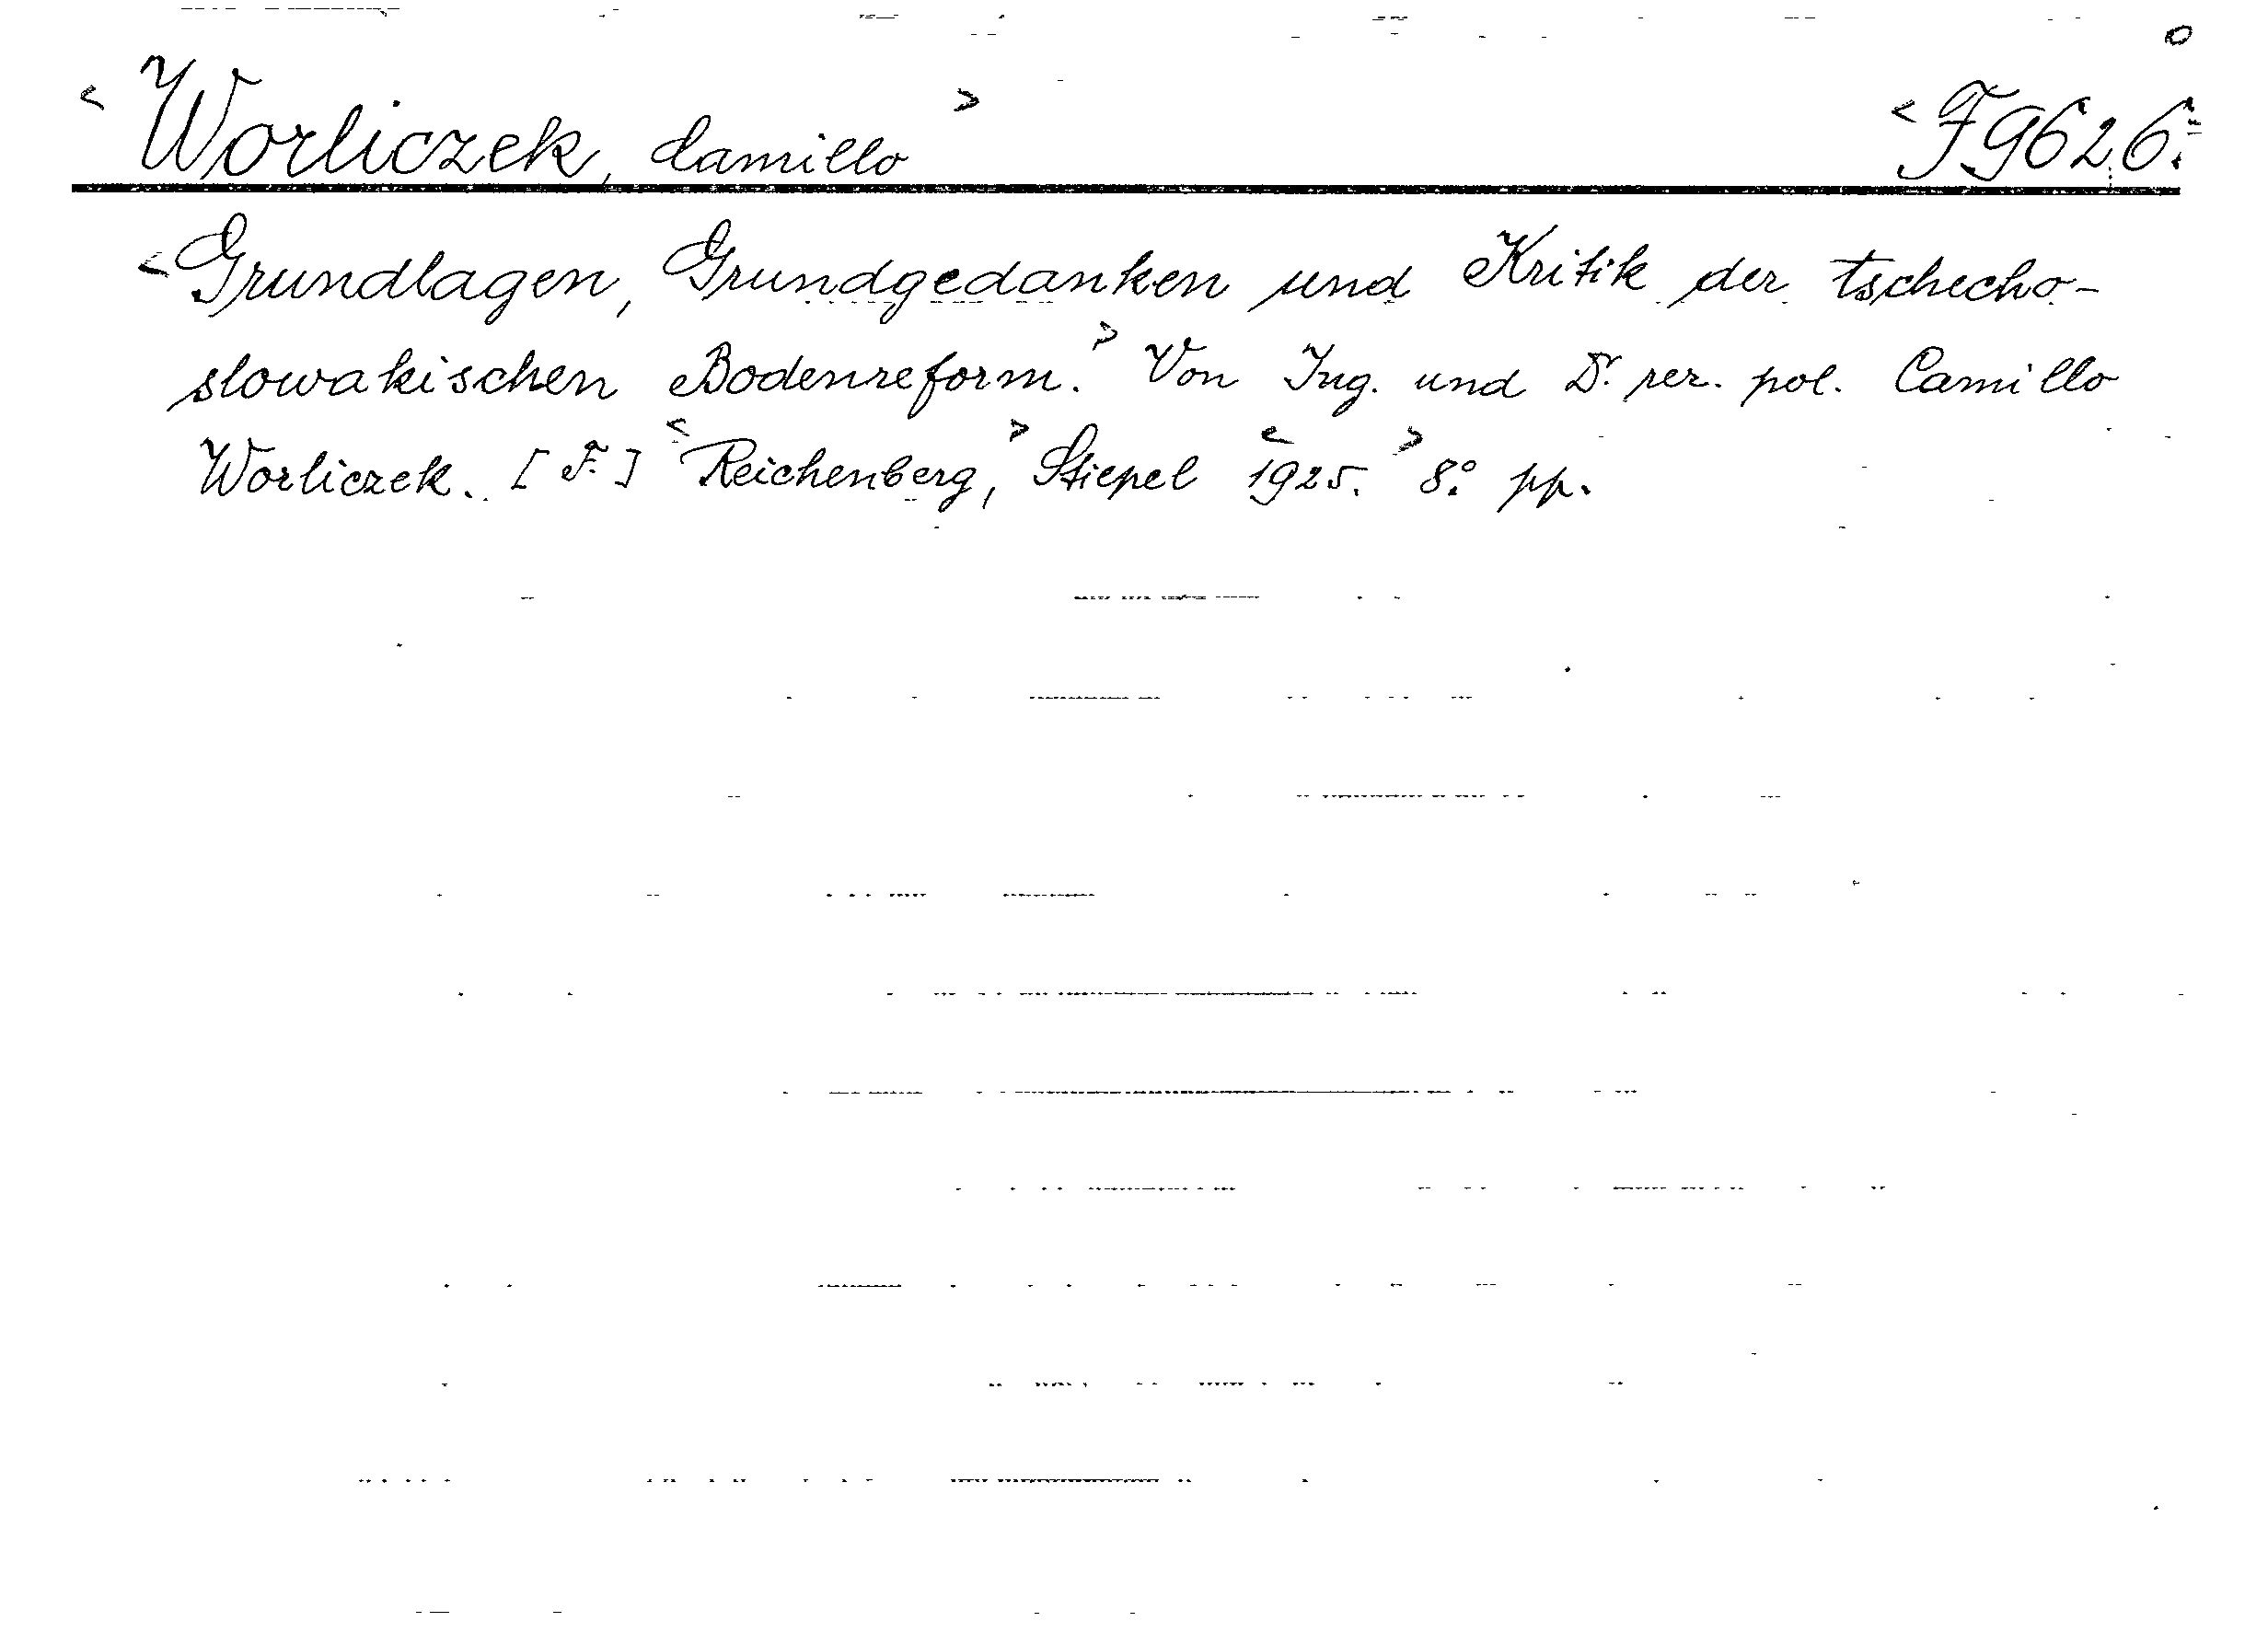 < Worliczek, Camillo > < F 9626. >
< Grundlagen, Grundgedanken und Kritik der tschecho-
slowakischen Bodenreform. > Von Ing. und Dr. rer. pol. Camillo
Worliczek. [F.] < Reichenberg, > Stiepel < 1925. > 8.° pp.